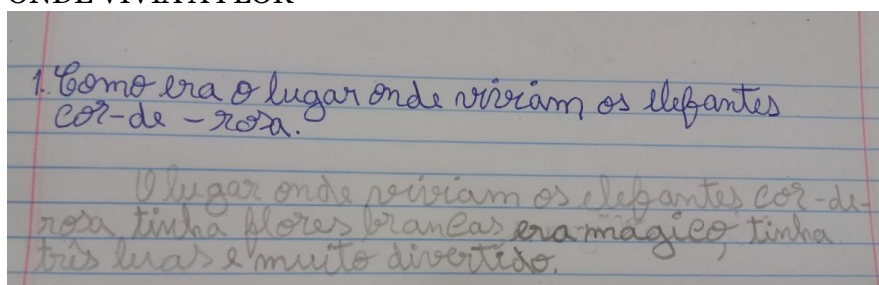 1. Como era o lugar onde viviam os elefantes
cor-de-rosa.
O lugar onde viviam os elefantes cor-de-
rosa tinha flores brancas era mágico, tinha
três luas e muito divertido.